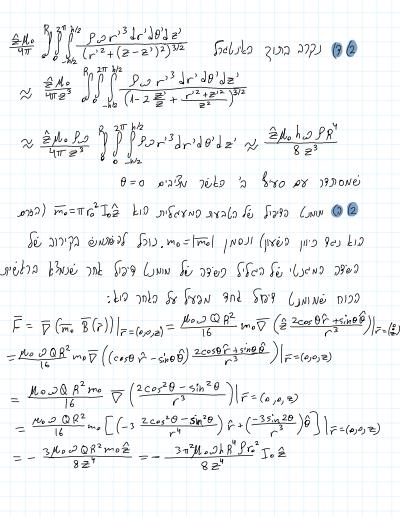 (2) נקרב בתוך האינטגרל
\frac{\hat{z}μ₀}{4π} \int_0^R \int_0^{2π} \int_{-h/2}^{h/2} \frac{ρωr'^3 dr'dθ'dz'}{(r'^2+(z-z')^2)^{3/2}}
≈ \frac{\hat{z}μ₀}{4πz^3} \int_0^R \int_0^{2π} \int_{-h/2}^{h/2} \frac{ρωr'^3 dr'dθ'dz'}{(1-2\frac{z'}{z}+\frac{r'^2+z'^2}{z^2})^{3/2}}
≈ \frac{\hat{z}μ₀ρω}{4πz^3} \int_0^R \int_0^{2π} \int_{-h/2}^{h/2} ρωr'^3 dr'dθ'dz' ≈ \frac{\hat{z}μ₀hωρR^4}{8z^3}
שמסתדר עם סעיף ב' כאשר מציבים θ=0
(2) מומנט הדיפול של הטבעת המעגלית הוא \bar{m}₀=πr₀²I₀\hat{z} (הזרם
הוא נגד כיוון השעון) ונסמן m₀=|\bar{m}₀|. נוכל להשתמש בקירוב של
השדה המגנטי של הגליל כשדה של מומנט דיפול אחד שנמצא בראשית
הכוח שמומנט דיפול אחד מפעיל על האחר הוא:
\bar{F} = \bar{∇}(\bar{m}₀\bar{B}(\bar{r}))|_{\bar{r}=(0,0,z)} = \frac{μ₀ωQR^2}{16} m₀\bar{∇}(\hat{z}\frac{2cosθ\hat{r}+sinθ\hat{θ}}{r^3})|_{\bar{r}=(0,0,z)}
= \frac{μ₀ωQR^2}{16} m₀\bar{∇}((cosθ\hat{r}-sinθ\hat{θ})\frac{2cosθ\hat{r}+sinθ\hat{θ}}{r^3})|_{\bar{r}=(0,0,z)}
= \frac{μ₀ωQR^2m₀}{16} \bar{∇}(\frac{2cos^2θ-sin^2θ}{r^3})|_{\bar{r}=(0,0,z)}
= \frac{μ₀ωQR^2}{16} m₀[(-3\frac{2cos^2θ-sin^2θ}{r^4})\hat{r}+(\frac{-3sin2θ}{r^3})\hat{θ}]|_{\bar{r}=(0,0,z)}
= -\frac{3μ₀ωQR^2m₀\hat{z}}{8z^4} = -\frac{3π^2μ₀ωhR^4ρr₀^2}{8z^4} I₀\hat{z}